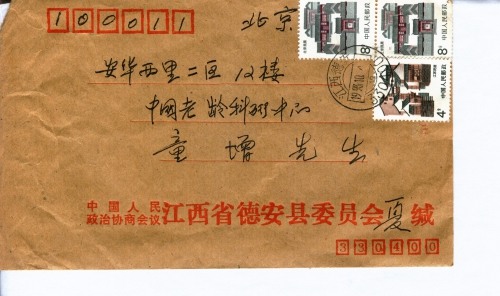 100011
北京
安华西里二区12楼
中国老龄科研中心
童增先生
中国人民
政治协商会议
江西省德安县委员会夏缄
330400
中国人民邮政
8
中国人民邮政
8
中国人民邮政
4
江西